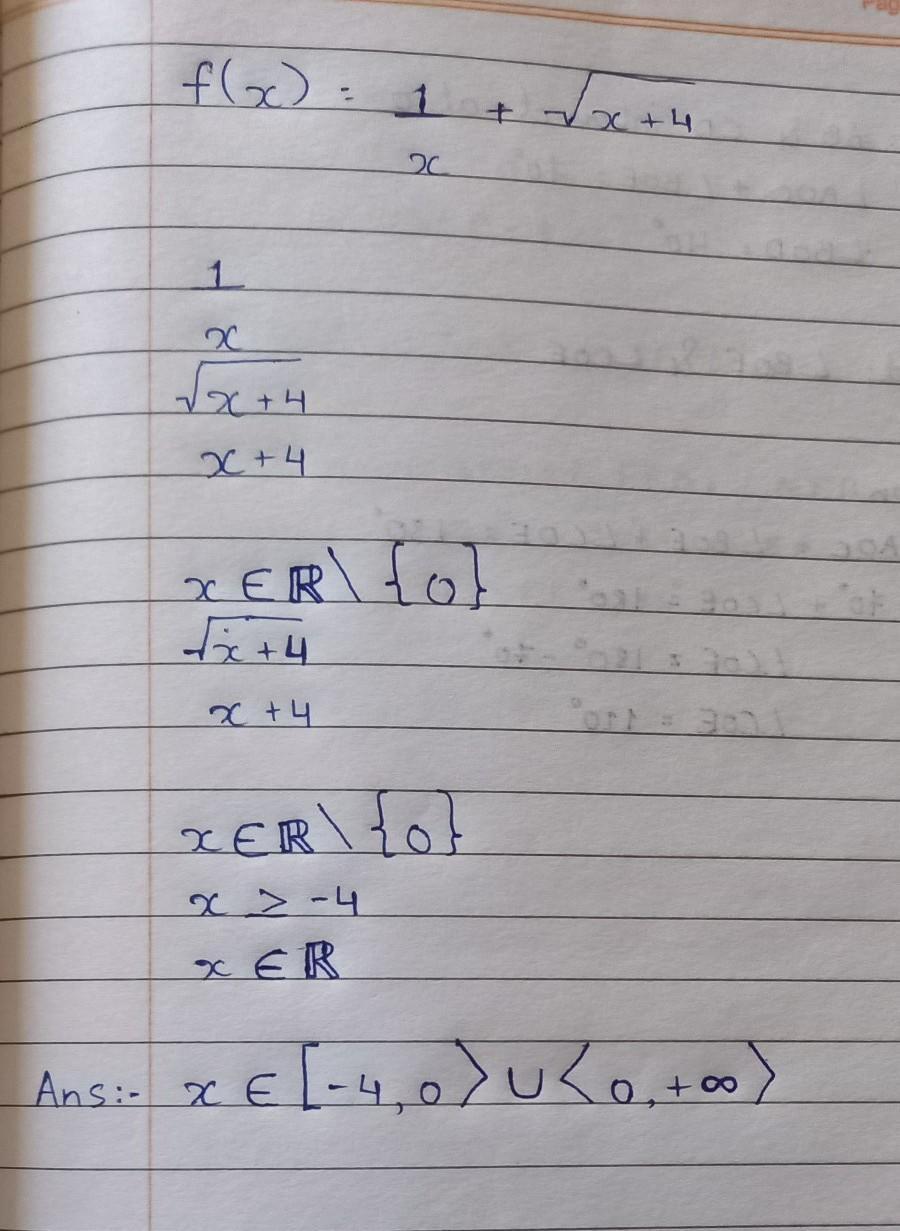 f(x) = 1/x + √x+4
1
x
√x+4
x+4
x ∈ ℝ \ {0}
√x+4
x+4
x ∈ ℝ \ {0}
x ≥ -4
x ∈ ℝ
Ans:- x ∈ [-4, 0⟩ ∪ ⟨0, +∞⟩